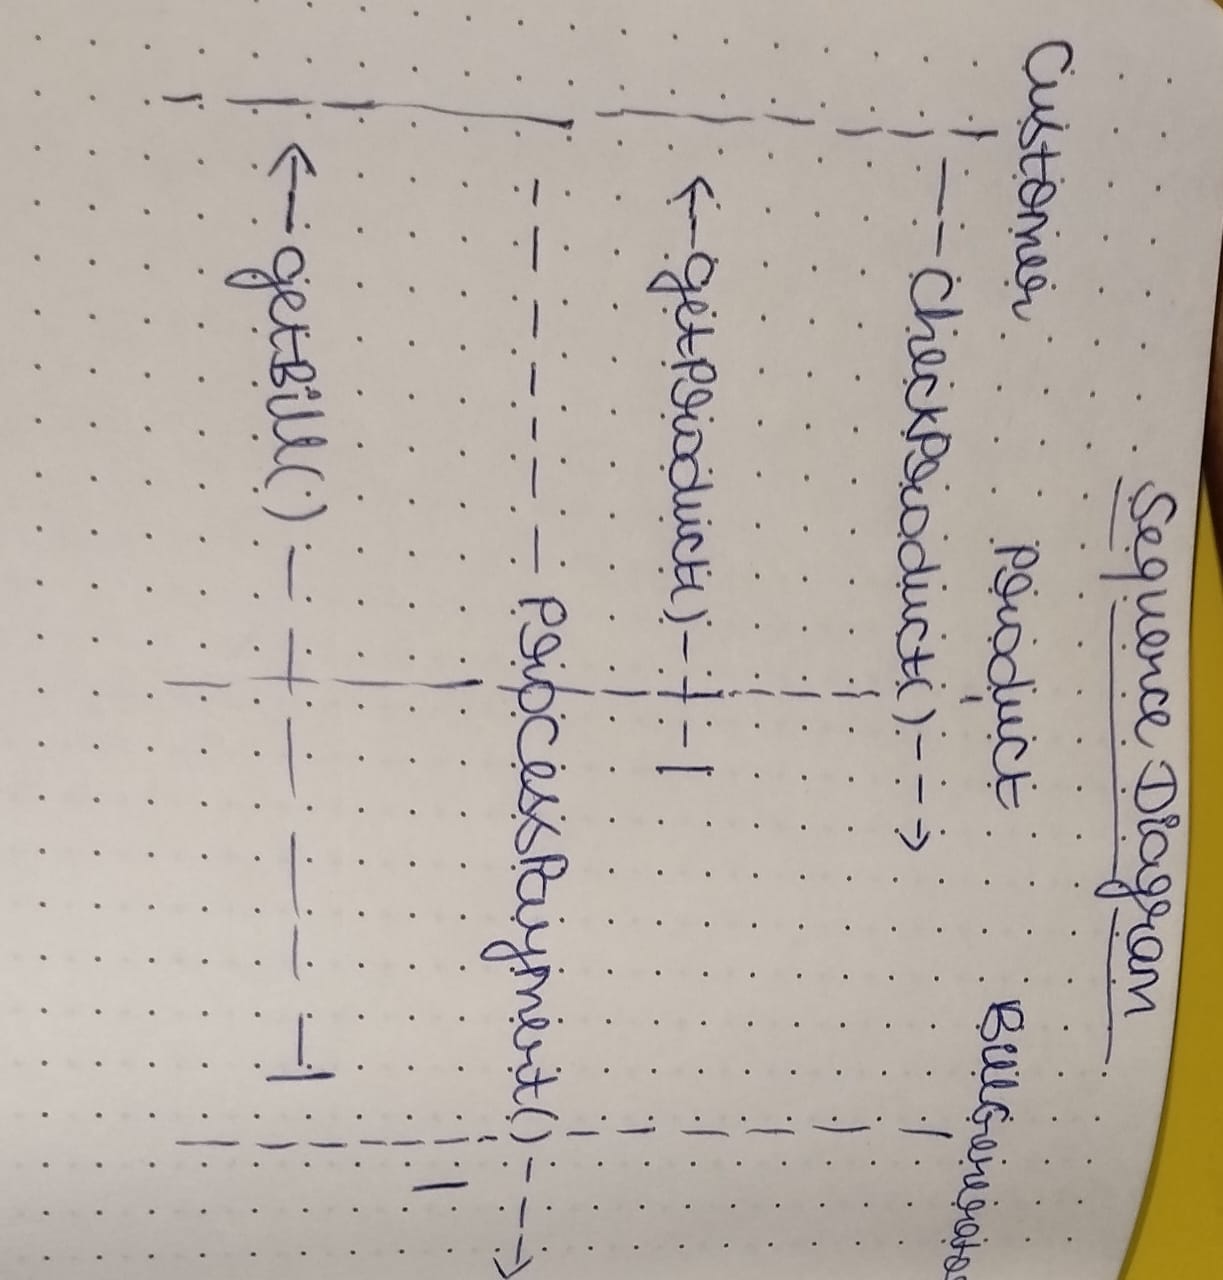 Sequence Diagram
Customer Product BillGenerator
CheckProduct()
getProduct()
ProcessPayment()
getBill()